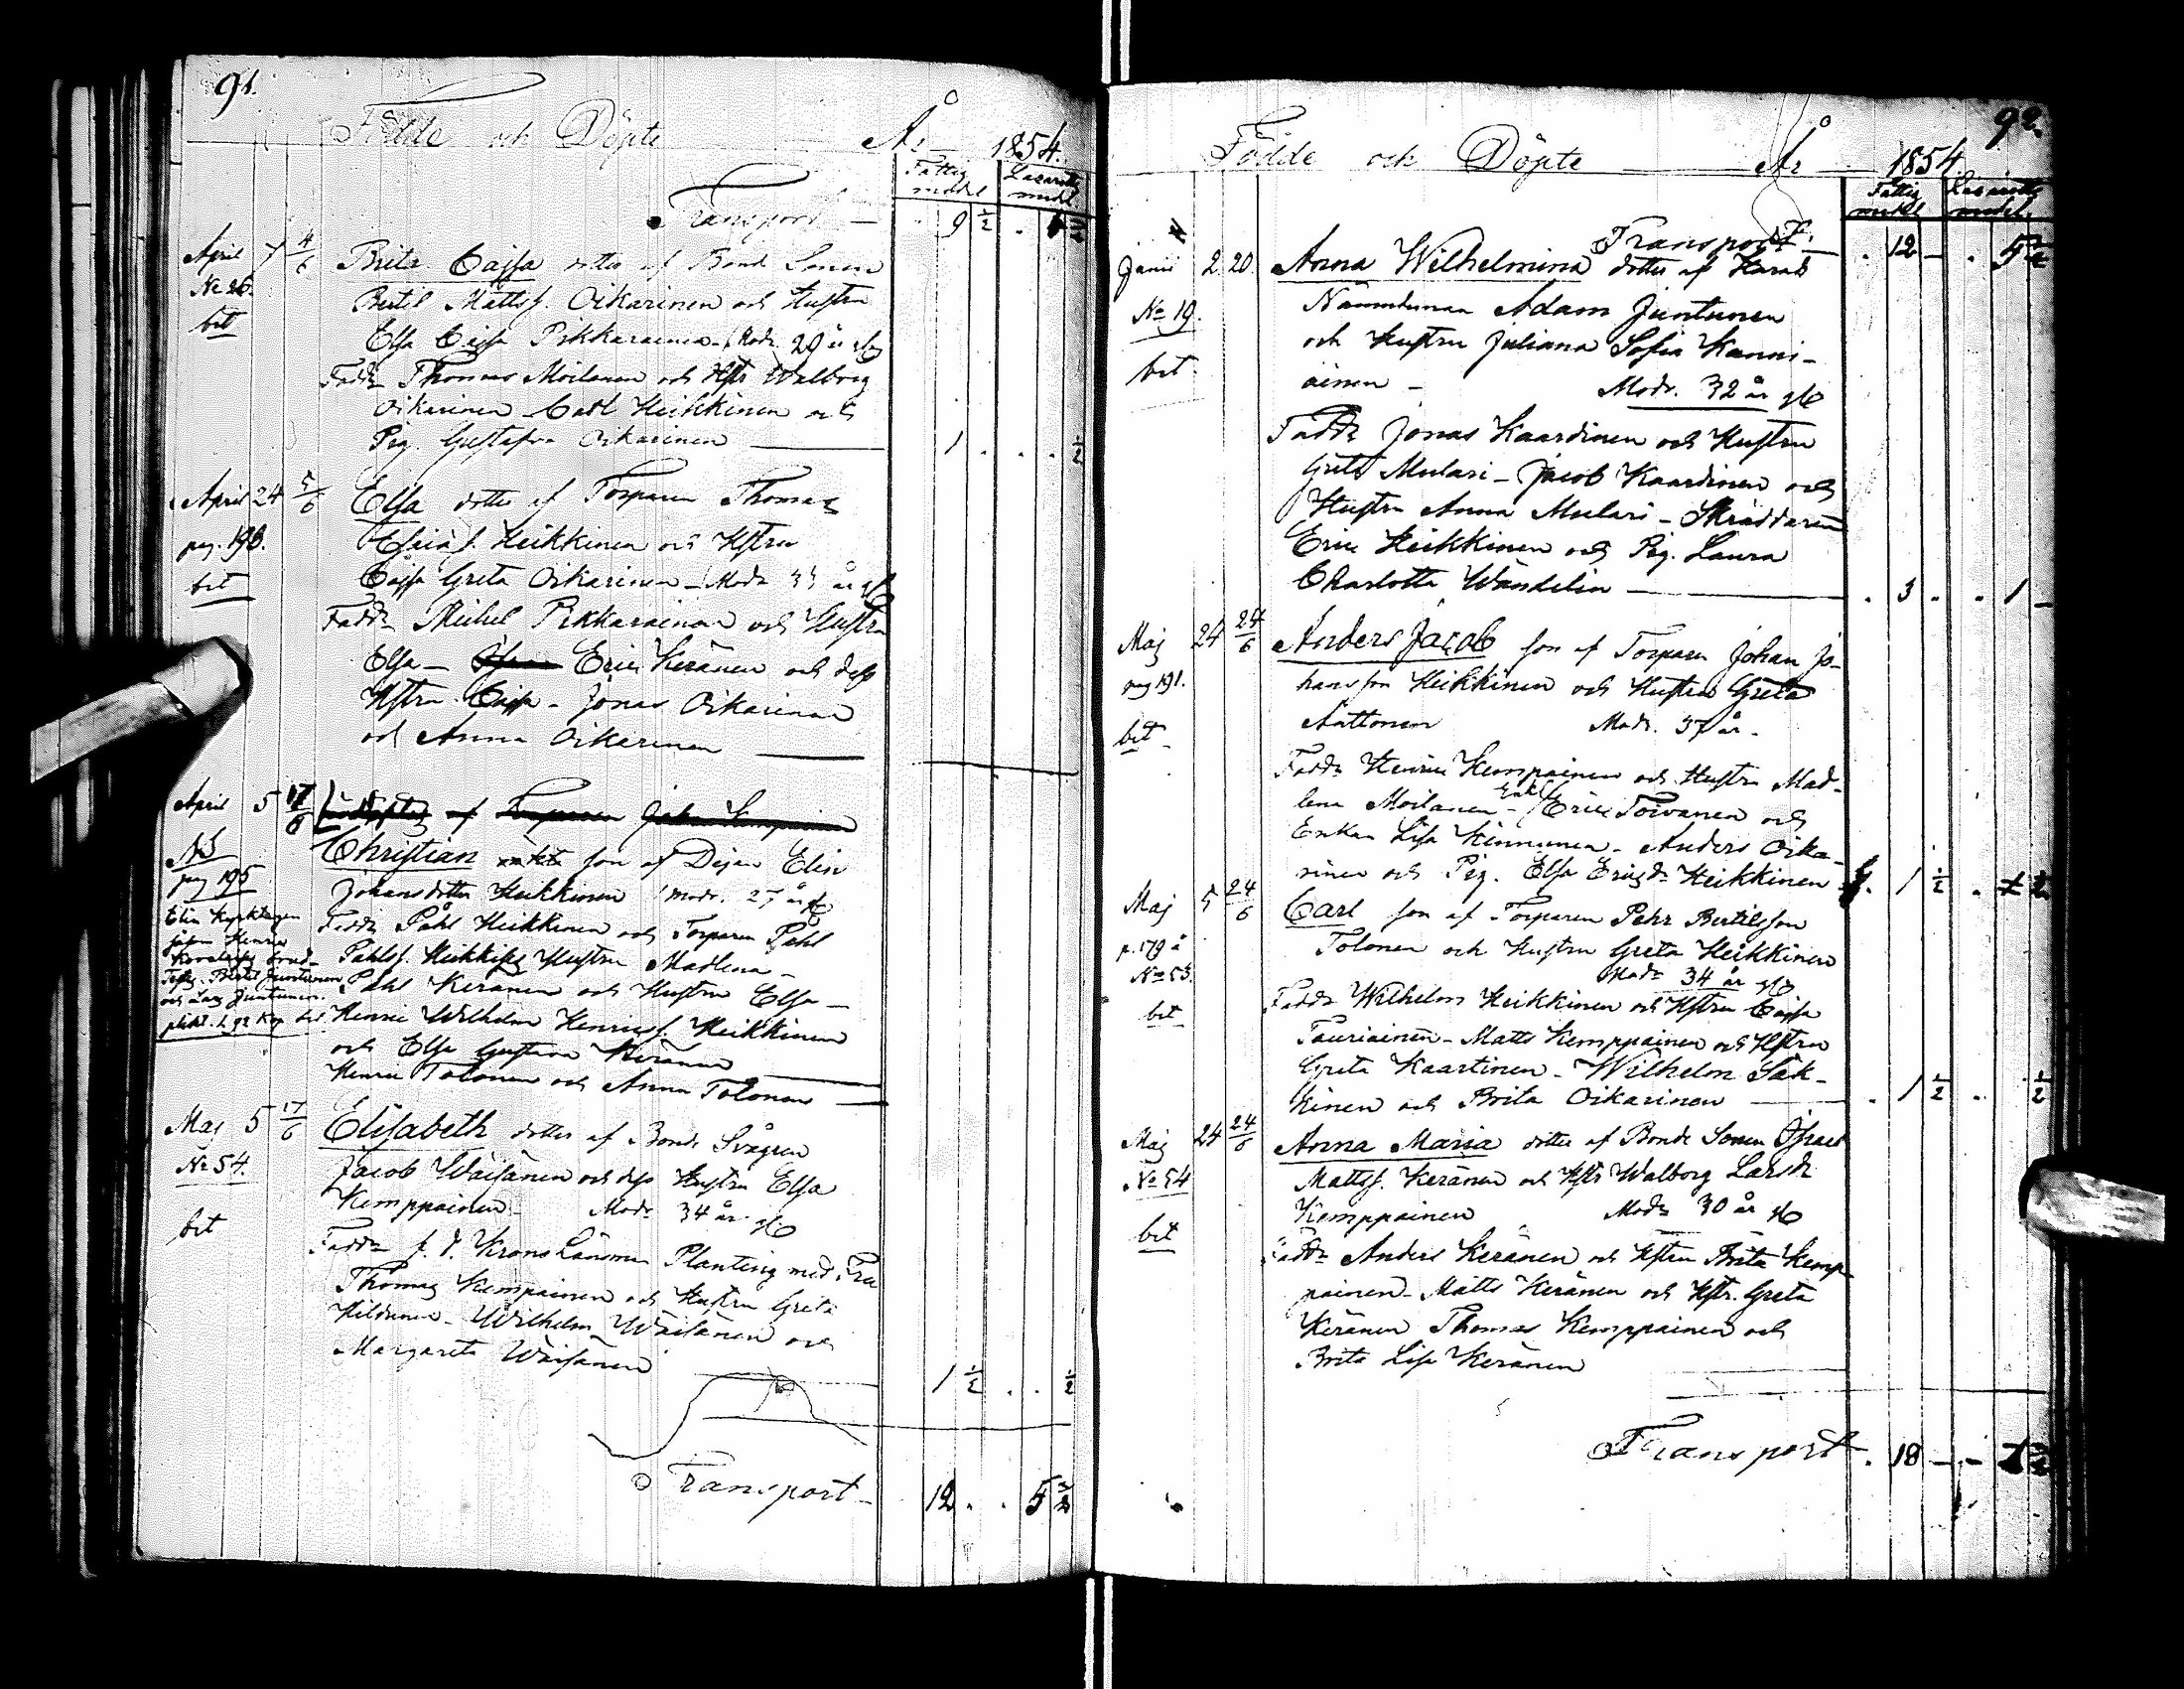 91.
Födde och Döpte År 1854.
Fattig medel Lazaretts medel
Transport 9 1/2
April 7 4/6 Brita Cajsa dotter af Bond Sonen
No 26. Bertil Mattss. Oikarinen och Hustru
bet Elsa Cajsa Pikkarainen (Modr. 29 år
Faddr Thomas Moilanen och Hstr Walborg
Oikarinen Carl Heikkinen och
Pig. Gustafva Oikarinen 1 1/2
April 24 5/6 Elsa dotter af Torparen Thomas
pag. 193. Heikkinen och Hstru
bet Cajsa Greta Oikarinen (Modr 33 år
Faddr Michel Pikkarainen och Hustru
Elsa Eric Keränen och dess
Hstru Cajsa - Jonas Oikarinen
och Anna Oikarinen
April 5 17/6 af Torparen Johan
Christian son af Pigan Elin
pag 195 Johansdotter Heikkinen (modr. 27 år
Faddr Påhl Heikkinen och Torparen Påhl
Påhlss. Hustru Madlena -
Påhl Keränen och Hustru Elsa -
Bertil Juntunen
och Lars Juntunen.
Henric Wilhelm Henricss. Heikkinen
och Elsa Gustava Keränen
Henric Tolonen och Anna Tolonen
Maj 5 17/6 Elisabeth dotter af Bonde Svågren
No 54. Jacob Wäisänen och dess Hustru Elsa
Kemppainen - Modr 34 år
bet Faddr f. d. Krons Länsman Planting med Fru
Thomas Kemppainen och Hustru Greta
Wilhelm Wäisänen och
Margareta Wäisänen 1 1/2 1/2
Transport 12 5
92.
Födde och Döpte År 1854
Fattig medel Lazaretts medel
Transport 12 - 5
Junii 2 20 Anna Wilhelmina dotter af Härads
No 19. Nämndeman Adam Juntunen
och Hustru Juliana Sofia Kanni-
bet ainen - Modr. 32 år
Faddr Jonas Kaardinen och Hustru
Greta Mulari - Jacob Kaardinen och
Hustru Anna Mulari - Skräddaren
Eric Heikkinen och Pig. Laura
Charlotta Wändelin 3 1 -
Maj 24 24/6 Anders Jacob son af Torparen Johan Jo-
pag 191. hansson Heikkinen och Hustru Greta
bet Aattonen Modr. 37 år -
Faddr Henric Kemppainen och Hustru Mad-
lena Moilanen - Enkl Eric Toivanen och
Enkan Lisa Kinnunen - Anders Oika-
rinen och Pig. Elsa Ericsdr Heikkinen 1 1/2
Maj 5 24/6 Carl son af Torparen Pehr Bertilsson
p. 179 å Tolonen och Hustru Greta Heikkinen
No 53. Modr 34 år
bet Faddr Wilhelm Heikkinen och Hstru Cajsa
Tauriainen - Matts Kemppainen och Hstru
Greta Kaartinen - Wilhelm Säk-
kinen och Brita Oikarinen 1 1/2 1/2
Maj 24 24/6 Anna Maria dotter af Bonde Sonen Israel
No 54 Mattss. Keränen och Hstr Walborg Larsdr
Kemppainen Modr 30 år
bet Faddr Anders Keränen och Hstru Brita Kemp-
painen - Matts Keränen och Hstr. Greta
Keränen Thomas Kemppainen och
Brita Lisa Keränen
Transport 18